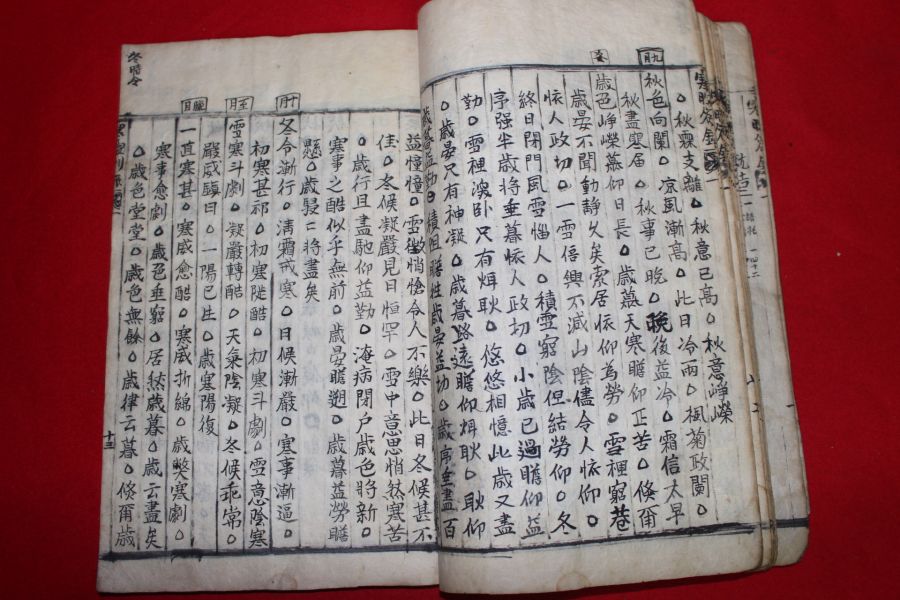 九月
○秋霖支離○秋意已高○秋意崢嶸
秋色向闌○凉風漸高○此日冷雨○楓菊政闌○
秋盡寒居○秋事已晩○晩後益冷○霜信太早
冬
歲色崢嶸慕仰日長○歲暮天寒瞻仰正苦○倏爾
歲晏不聞動靜久矣索居依仰為勞○雪裡窮巷
悵人政切○一雪信興不減山陰儘令人依仰○
終日閉門風雪惱人○積雪窮陰但結勞仰○冬
序强半歲將垂暮悵人政切○小歲已過瞻仰益
勤○雪裡澳卧只有焆耿○悠悠相憶此歲又盡
○歲晏只有神凝○歲暮路遠瞻仰焆耿○耿仰
歲暮益勤○積阻瞻往歲晏益切○歲序垂盡百
冬時令
益憧憧○雪悄悄愴令人不樂○此日冬候甚不
佳○冬候凝嚴見日恒罕○雪中意思悄然寒苦
○歲行且盡馳仰益勤○淹病閉户歲色將新○
寒事之酷似乎無前○歲晏瞻遡○歲暮益勞瞻
懸○歲將盡矣
十月
冬令漸行○淸霜戒寒○日候漸嚴○寒事漸逼○
初寒甚邪○初寒陡酷○初寒斗劇○雪意陰寒
至月
雪寒斗劇○凝嚴轉酷○天氣陰凝○冬候乖常○
嚴威驕日○一陽已生○歲寒陽復
臘月
一直寒甚○寒威愈酷○寒威折綿○歲弊寒劇○
寒事愈劇○歲色垂窮○居然歲暮○歲云盡矣
○歲色堂堂○歲色無餘○歲律云暮○倏爾歲
十三